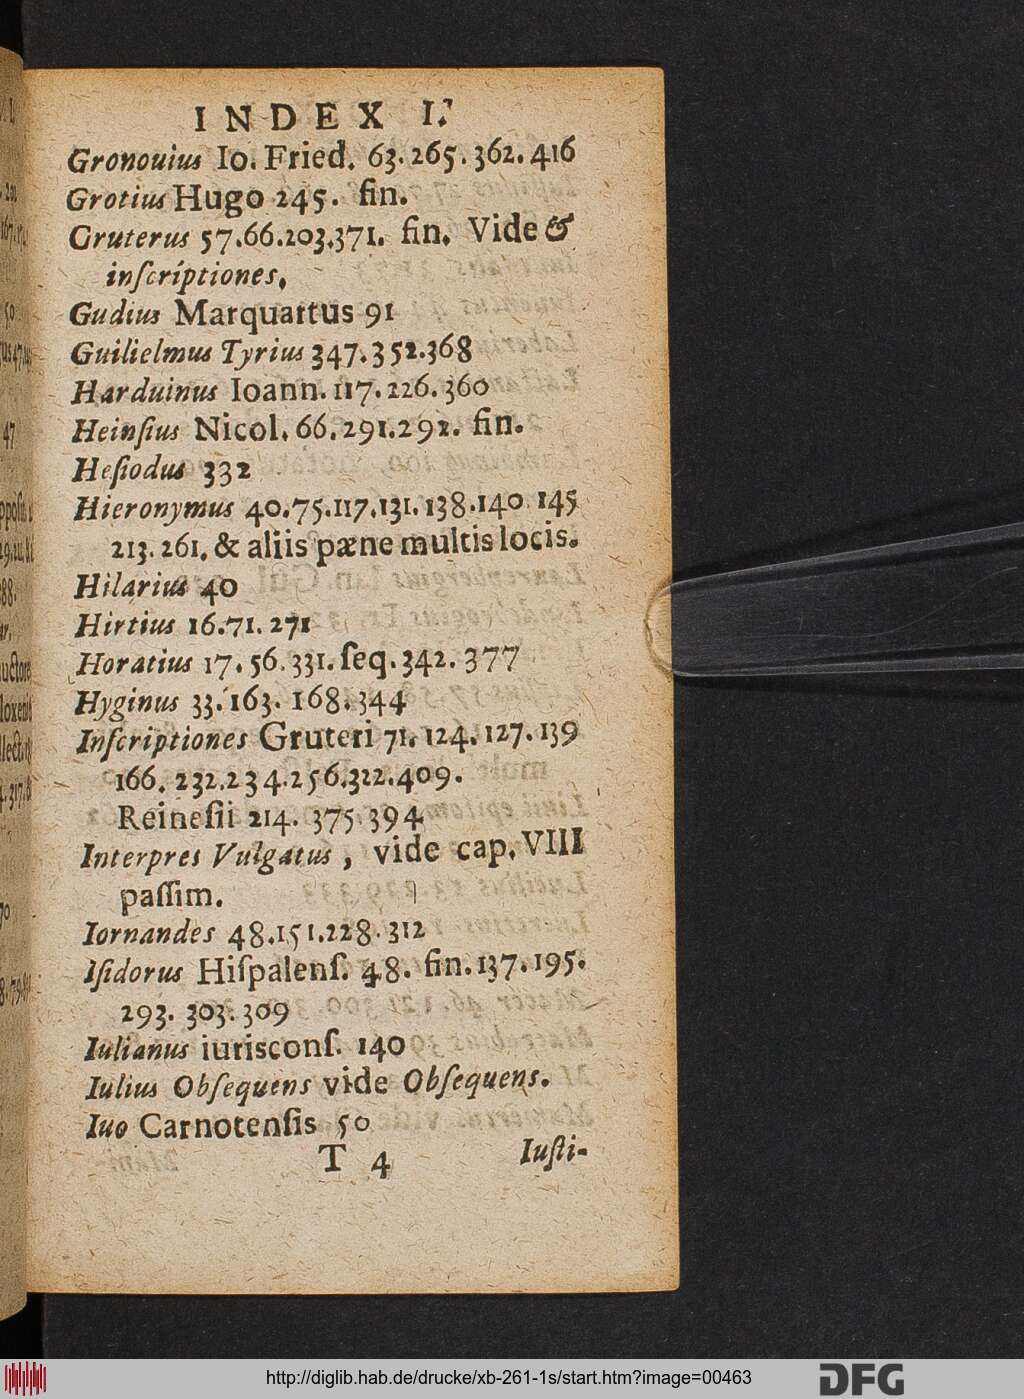 INDEX I.
Gronouius Io. Fried. 63. 265. 362. 416
Grotius Hugo 245. fin.
Gruterus 57.66.203.371. fin. Vide &
inſcriptiones.
Gudius Marquartus 91
Guilielmus Tyrius 347.352.368
Harduinus Ioann. 117. 226. 360
Heinſius Nicol. 66. 291.292. fin.
Heſiodus 332
Hieronymus 40.75.117.131.138.140 145
213. 261. & aliis pæne multis locis.
Hilarius 40
Hirtius 16.71. 271
Horatius 17. 56. 331. ſeq. 342. 377
Hyginus 33. 163. 168. 344
Inſcriptiones Gruteri 71. 124. 127. 139
166. 232.234.256.322.409.
Reineſii 214. 375 394
Interpres Vulgatus, vide cap. VIII
paſſim.
Iornandes 48.151.228. 312
Iſidorus Hiſpalenſ. 48. fin. 137. 195.
293. 303. 309
Iulianus iurisconſ. 140
Iulius Obſequens vide Obſequens.
Iuo Carnotenſis 50
T 4 Iuſti-
http://diglib.hab.de/drucke/xb-261-1s/start.htm?image=00463
DFG